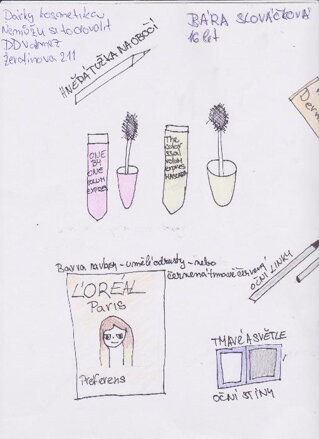 Dárky kosmetika
Nemůžu si to dovolit
DDValmez
Žerotínova 211
BÁRA SLOVÁČKOVÁ
16 let
HNĚDÁ TUŽKA NA OBOČÍ
ONE
BY
ONE
VOLUM
EXPRES
The
Colossal
volum
expres
MASCARA
Barva na vlasy - umělé odrosty - nebo
červená tmavě červený
L'ORÉAL
Paris
Preferens
OČNÍ LINKY
TMAVÉ A SVĚTLÉ
OČNÍ STÍNY